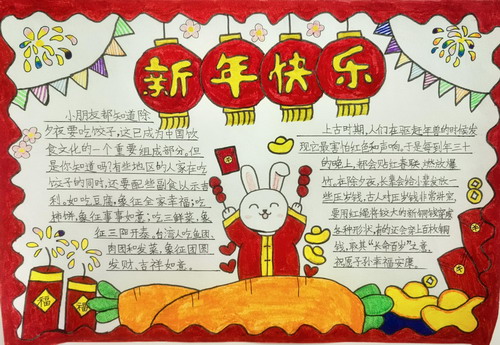 新年快乐
小朋友都知道除
夕夜要吃饺子,这已成为中国饮
食文化的一个重要组成部分。但
是你知道吗?有些地区的人家在吃
饺子的同时,还要配些副食以示吉
利。如吃豆腐,象征全家幸福;吃
柿饼,象征事事如意;吃三鲜菜,象
征三阳开泰。台湾人吃鱼团、
肉团和发菜,象征团圆
发财、吉祥如意。
上古时期,人们在驱赶年兽的时候发
现它最害怕红色和声响,于是每到年三十
的晚上,都会贴红春联、燃放爆
竹。在除夕夜,长辈会给小辈发放一
些压岁钱,古人对压岁钱非常讲究,
要用红绳将较大的新铜钱穿成
各种形状,有的还会穿上百枚铜
钱,取其“长命百岁”之意,
祝愿子孙幸福安康。
福
福